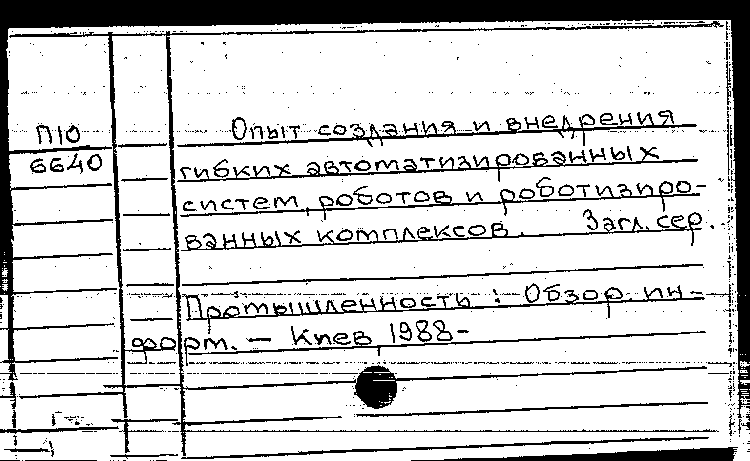 П10
6640
Опыт создания и внедрения
гибких автоматизированных
систем, роботов и роботизиро-
ванных комплексов. Загл. сер.
Промышленность : Обзор. ин-
форм. — Киев, 1988-